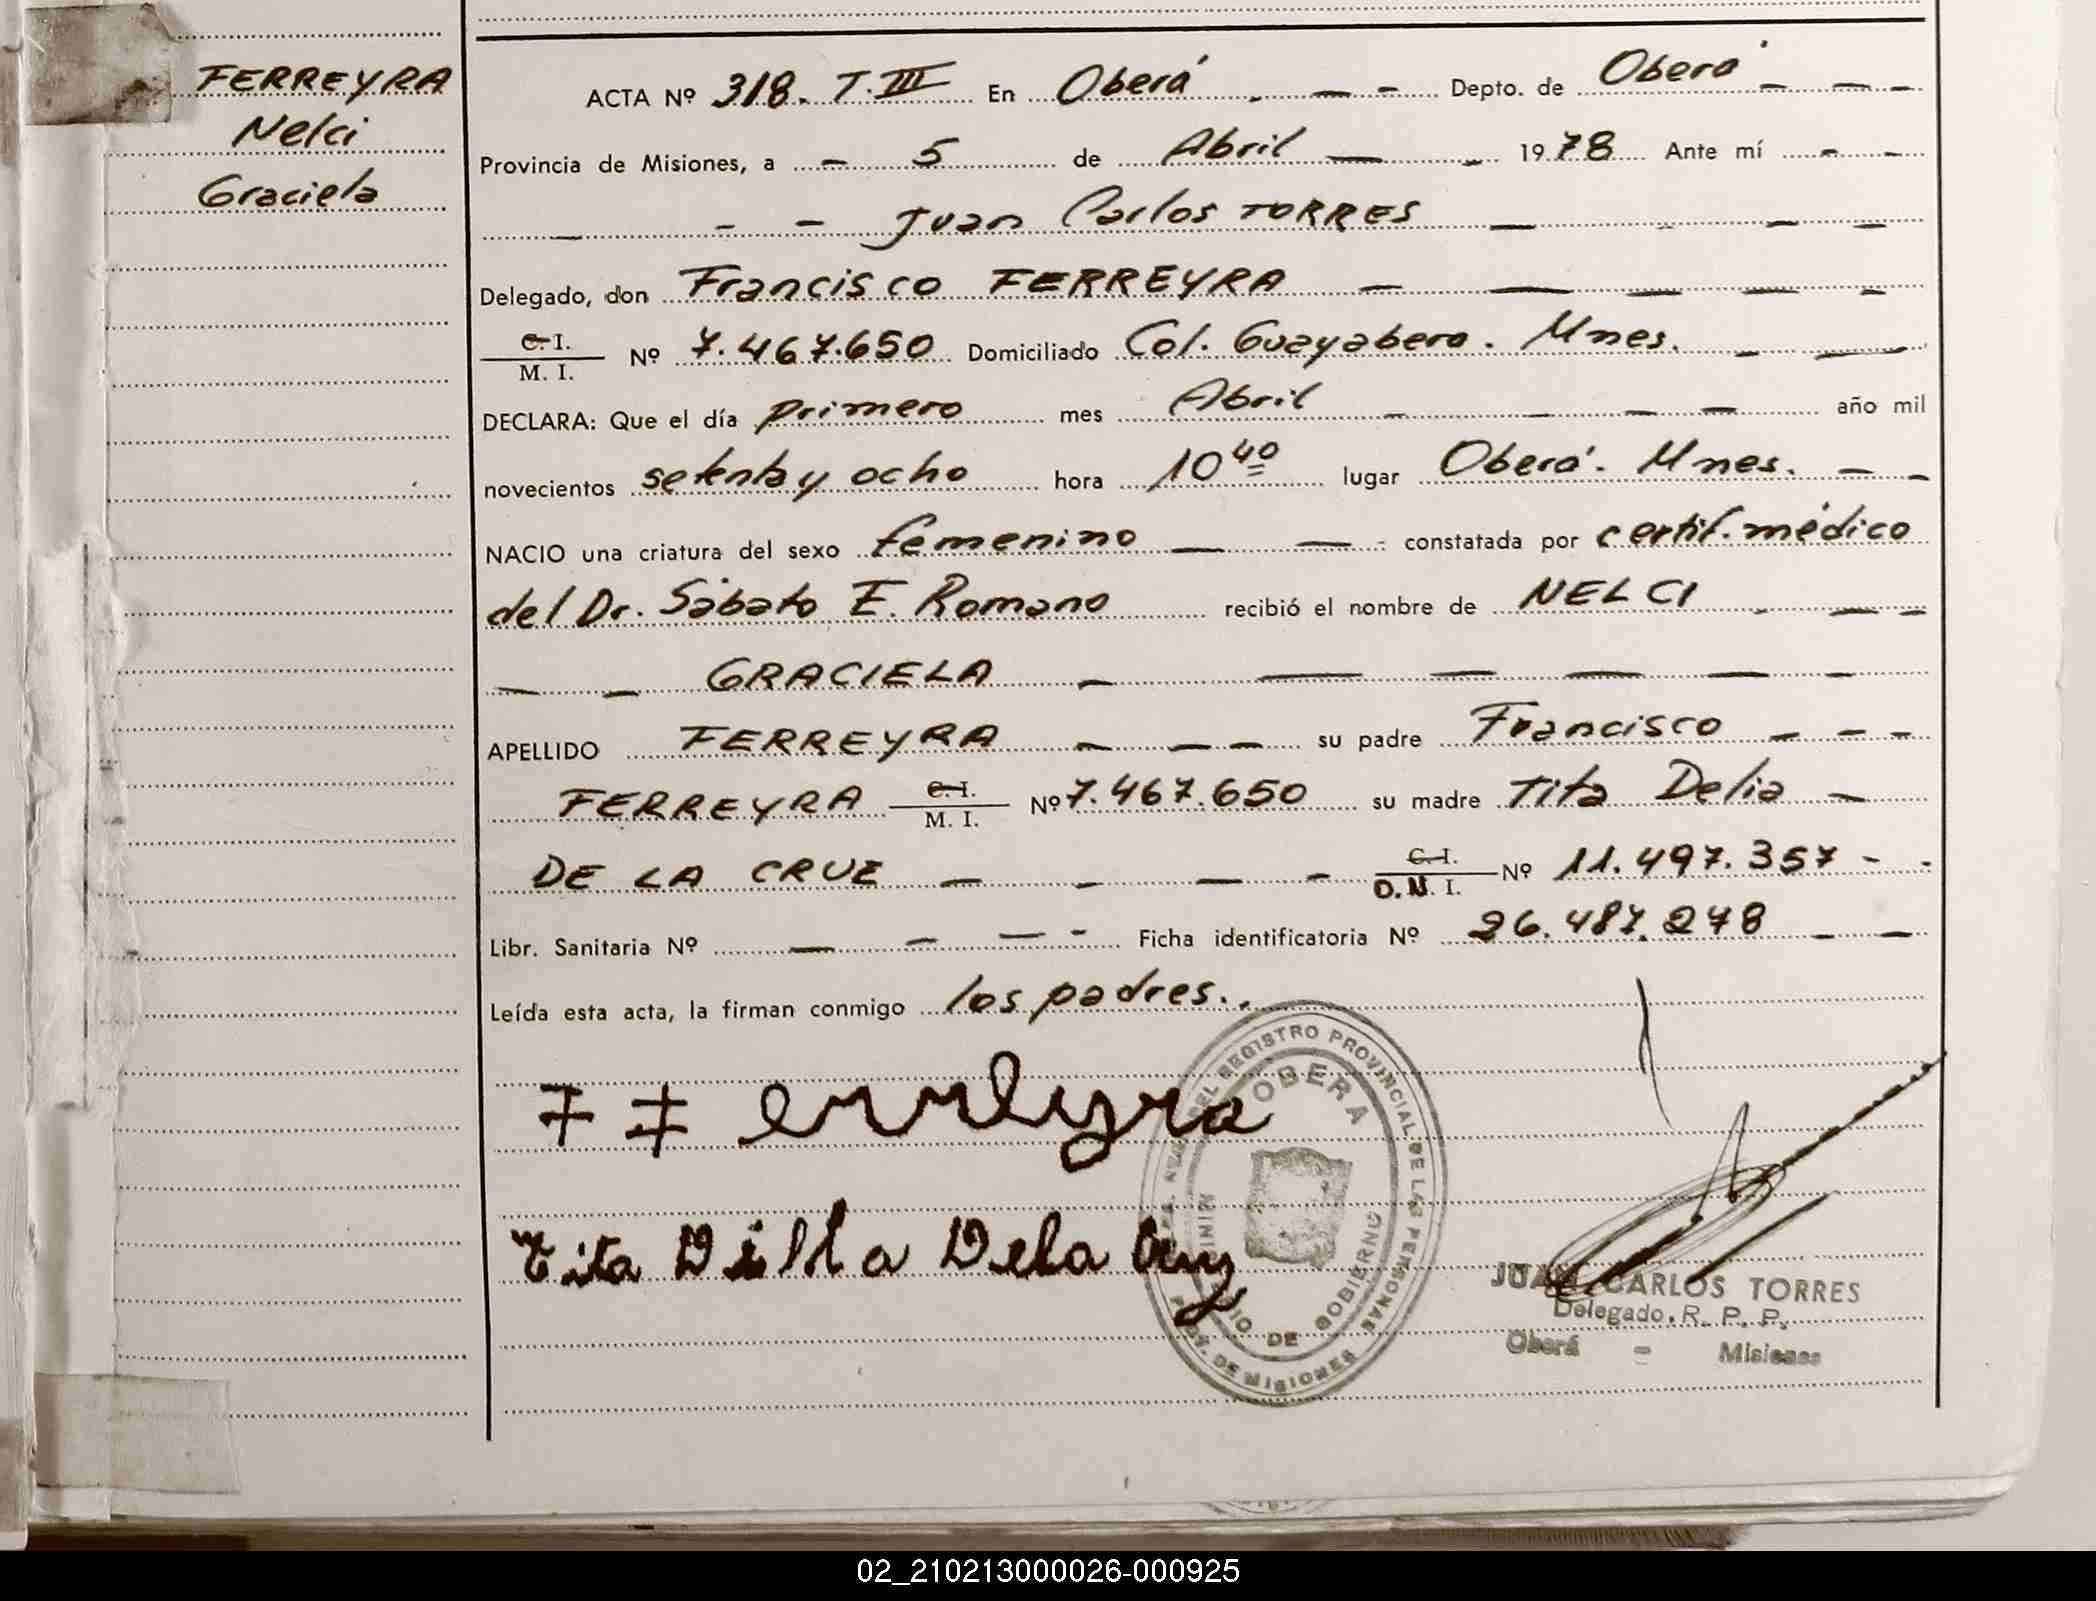 FERREYRA
Nelci
Graciela
ACTA Nº 318. T. III En Oberá Depto. de Oberá
Provincia de Misiones, a 5 de Abril 1978 Ante mí
Juan Carlos TORRES
Delegado, don Francisco FERREYRA
C. I.
M. I. Nº 7.467.650 Domiciliado Col. Guayabera. Mnes.
DECLARA: Que el día primero mes Abril año mil
novecientos setenta y ocho hora 10 40 lugar Oberá. Mnes.
NACIO una criatura del sexo femenino constatada por certif. médico
del Dr. Sábato E. Romano recibió el nombre de NELCI
GRACIELA
APELLIDO FERREYRA su padre Francisco
FERREYRA C. I. M. I. Nº 7.467.650 su madre Tita Delia
DE LA CRUZ C. I. D.N. I. Nº 11.497.357
Libr. Sanitaria Nº Ficha identificatoria Nº 26.487.278
Leída esta acta, la firman conmigo los padres.
REGISTRO PROVINCIAL DE LAS PERSONAS
OBERA
DE GOBIERNO
DE MISIONES
JUAN CARLOS TORRES
Delegado. R. P. P.
Oberá - Misiones
02_210213000026-000925